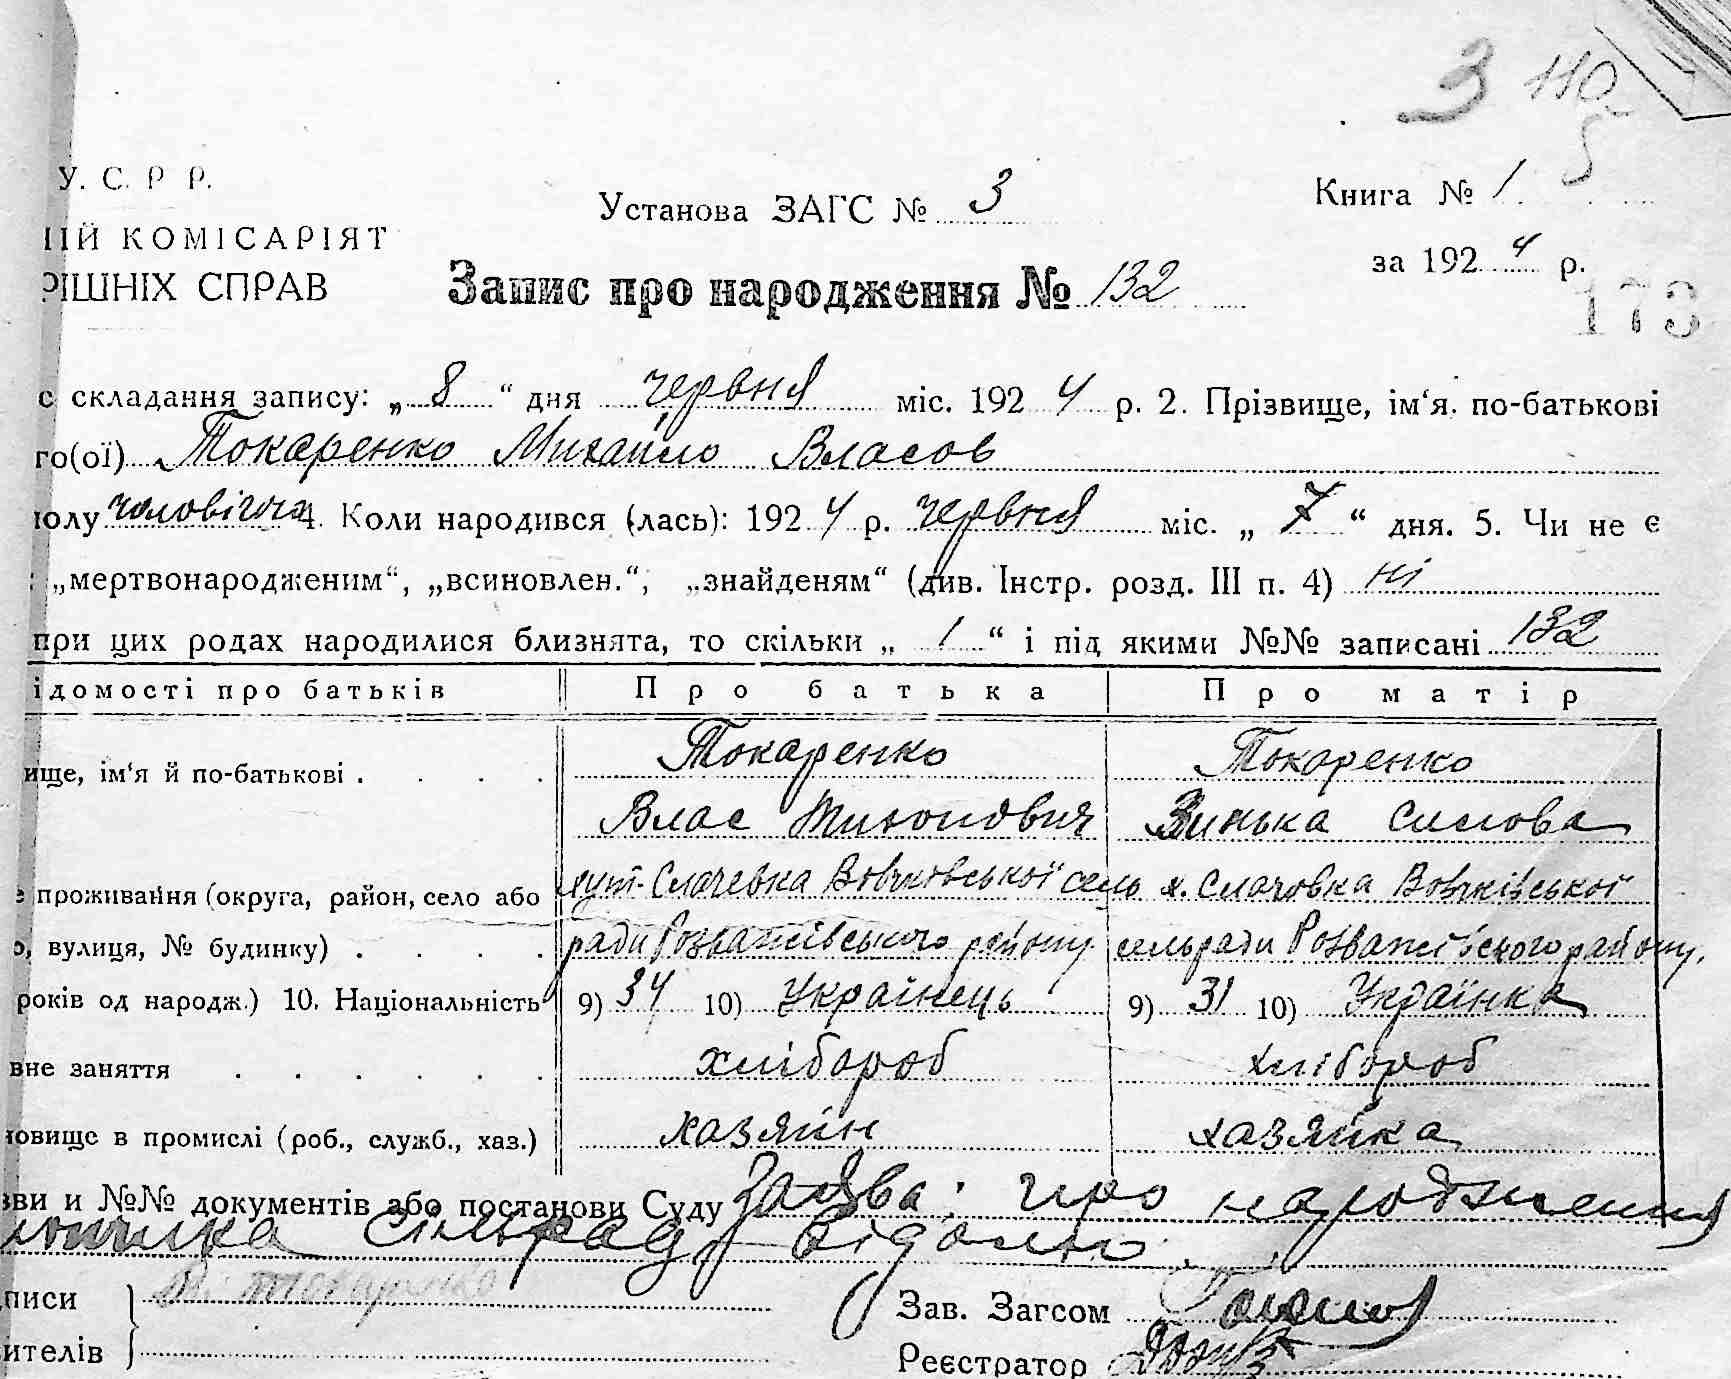 3 110
5
У. С. Р Р.
Установа ЗАГС № 3
Книга № 1
ІЙ КОМІСАРІЯТ
за 1924 р.
РІШНІХ СПРАВ
Запис про народження № 132
173
с складання запису: „ 8 “ дня червня міс. 1924 р. 2. Прізвище, ім‘я. по-батькові
го(ої) Токаренко Михайло Власов
полу чоловіча 4. Коли народився (лась): 1924 р. червня міс. „ 7 “ дня. 5. Чи не є
„мертвонародженим“, „всиновлен.“, „знайденям“ (див. Інстр. розд. III п. 4) ні
при цих родах народилися близнята, то скільки „ 1 “ і під якими №№ записані 132
ідомості про батьків Про батька Про матір
Токаренко Токаренко
ище, ім‘я й по-батькові
Влас Тихонович Зинька Силова
хут. Слачевка Вовчковської сель х. Слачовка Вовчківської
е проживання (округа, район, село або
о, вулиця, № будинку) ради Розважівського району сельради Розважівського району.
років од народж.) 10. Національність 9) 34 10) Українець 9) 31 10) Українка
вне заняття хлібороб хлібороб
новище в промислі (роб., служб., хаз.) хазяїн хазяйка
зви и №№ документів або постанови Суду Заява: про народження
сільрад відомо
писи
Зав. Загсом
ителів
Реєстратор